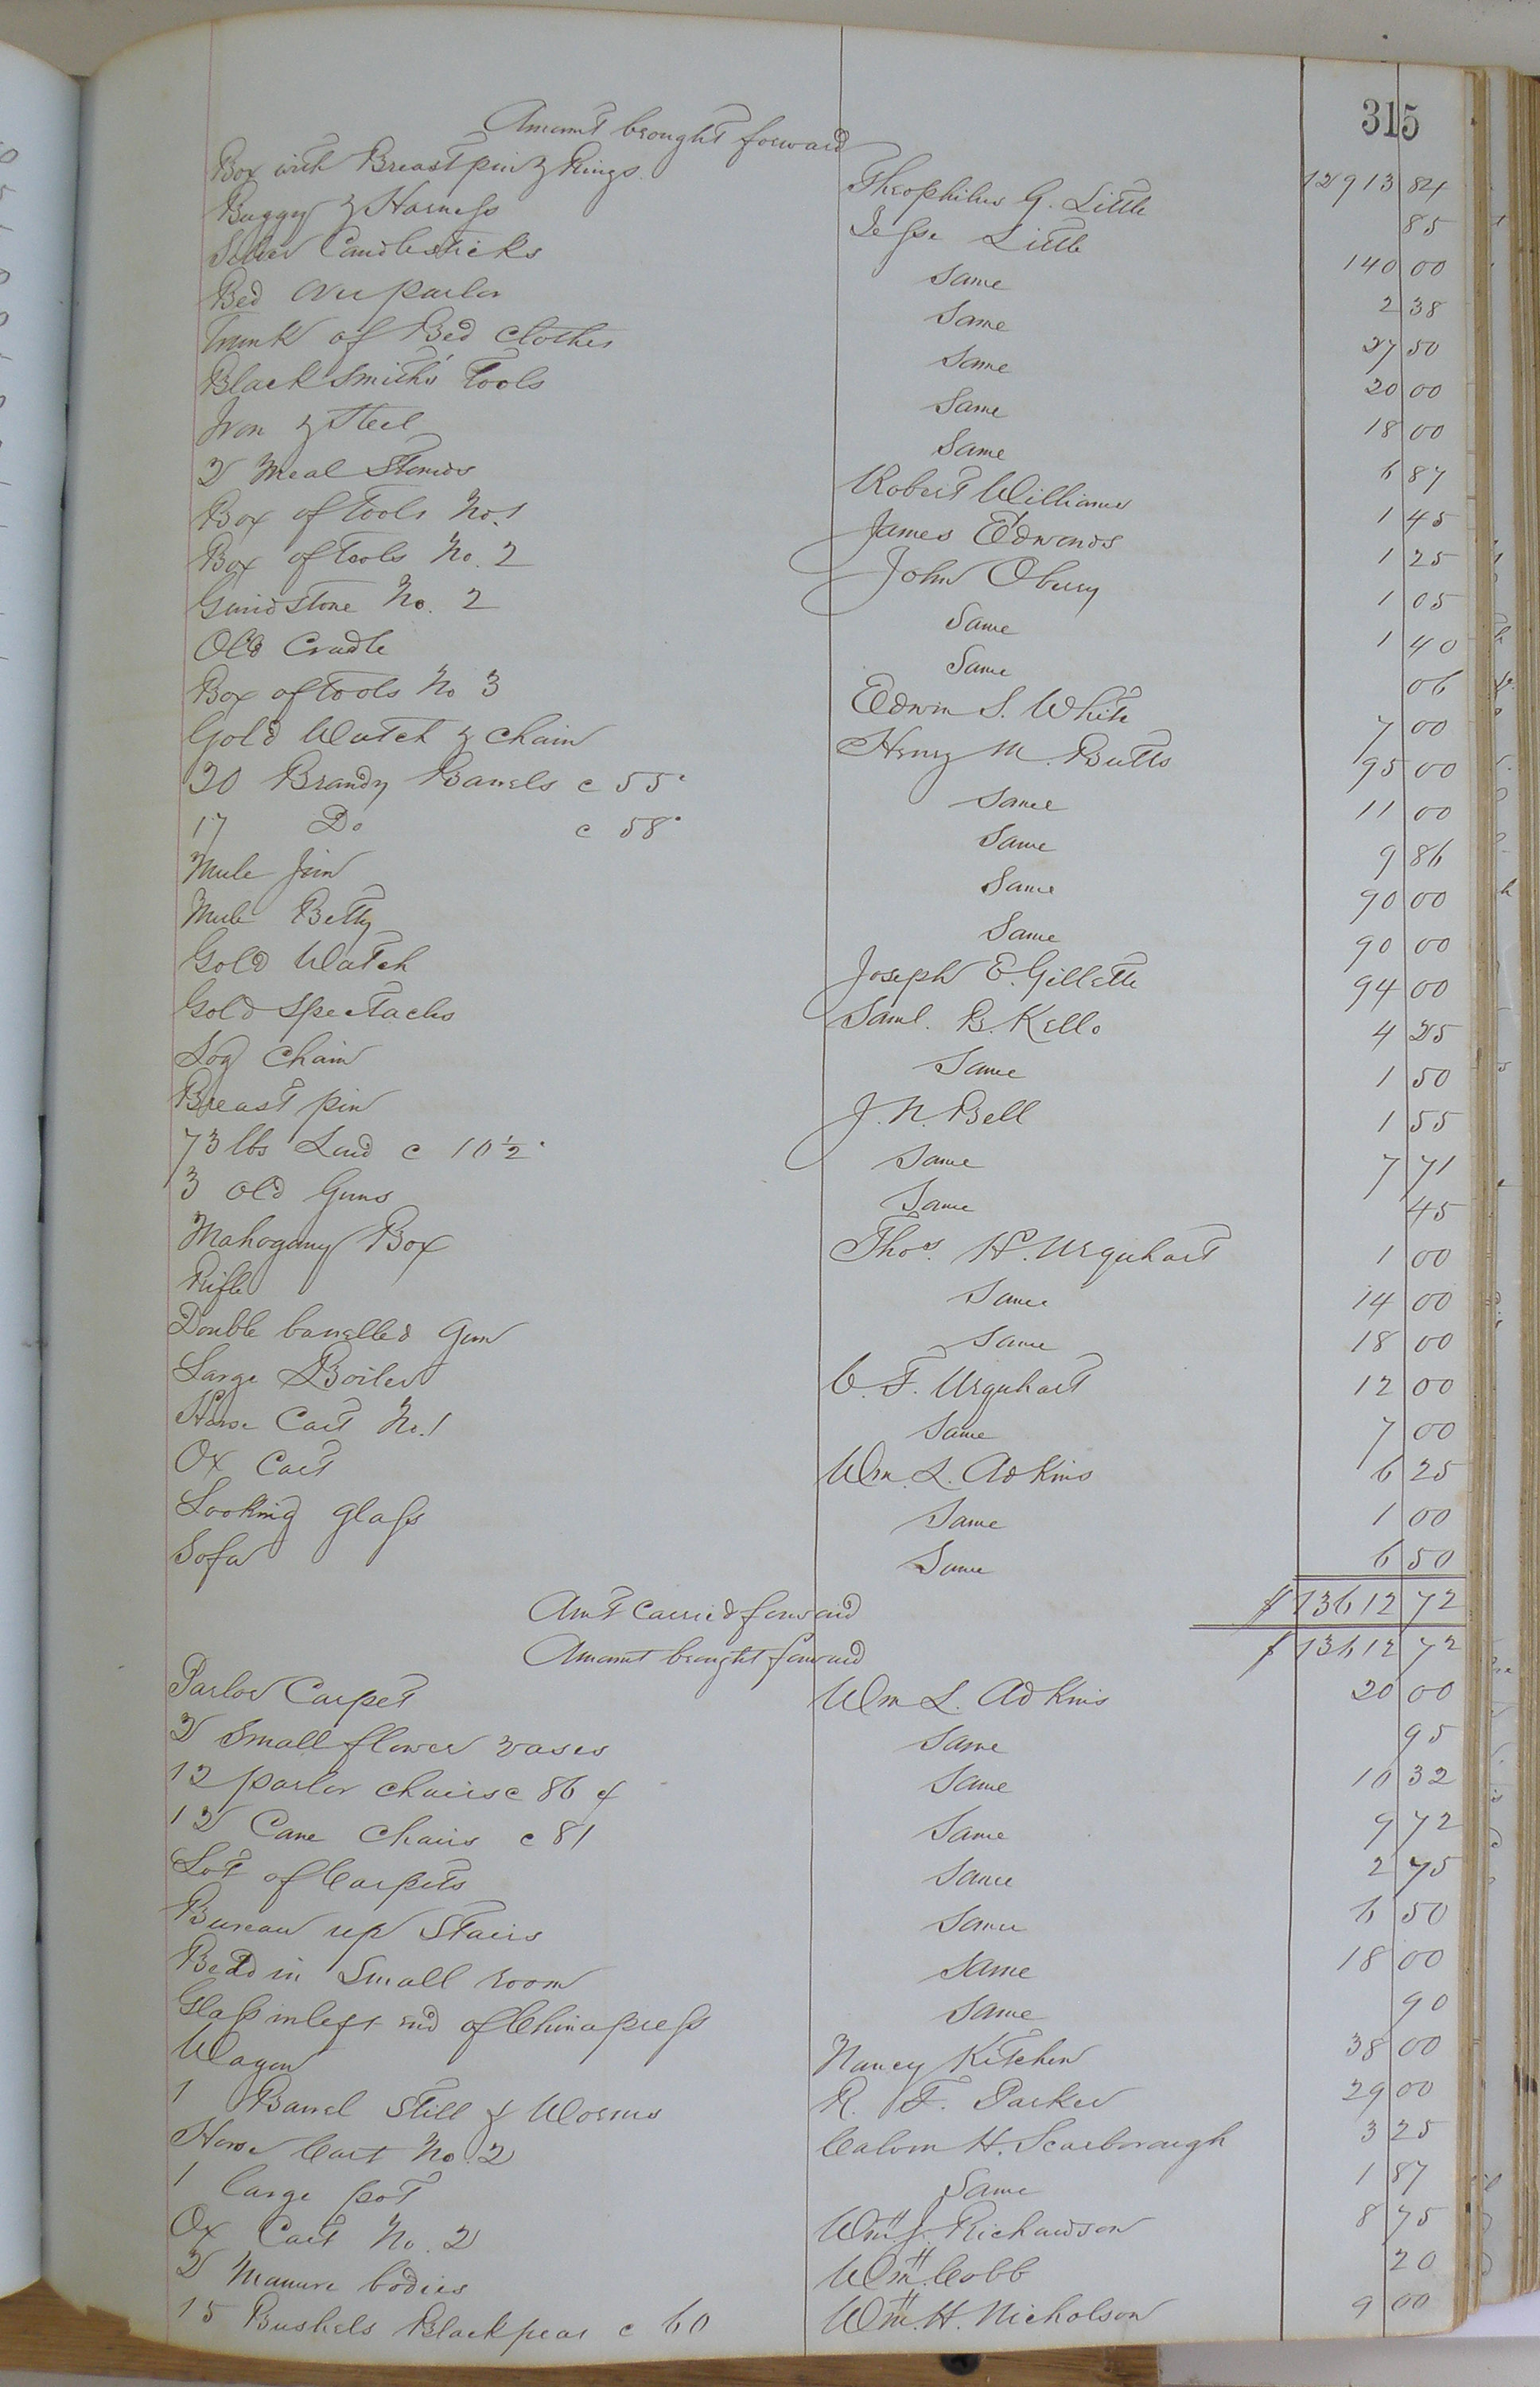 315
Amount brought forward 12913 84
Box with Breast pin & Rings Theophilus G. Little 85
Buggy & Harness Jesse Little 140 00
Silver Candlesticks Same 2 38
Bed over parlor Same 27 50
Trunk of Bed clothes Same 20 00
Black Smith's Tools Same 18 00
Iron & Steel Same 6 87
2 Meal Stands Robert Williams 1 45
Box of Tools No. 1 James Edwards 1 25
Box of Tools No. 2 John Obery 1 05
Grindstone No. 2 Same 1 40
Old Cradle Same 06
Box of Tools No 3 Edwin S. White 7 00
Gold Watch & Chain Henry M. Butts 95 00
20 Brandy Barrels c 55 Same 11 00
17 Do c 58 Same 9 86
Mule Jim Same 90 00
Mule Betty Same 90 00
Gold Watch Joseph E. Gillette 94 00
Gold Spectacles Saml. B. Kello 4 25
Log Chain Same 1 50
Breast pin J. N. Bell 1 55
73 lbs Lard c 10 1/2 Same 7 71
3 Old Guns Same 45
Mahogany Box Thos. H. Urquhart 1 00
Rifle Same 14 00
Double barrelled Gun Same 18 00
Large Boiler C. F. Urquhart 12 00
Horse Cart No. 1 Same 7 00
Ox Cart Wm. L. Adkins 6 25
Looking glass Same 1 00
Sofa Same 6 50
Amt Carried forward $ 13612 72
Amount brought forward $ 13612 72
Parlor Carpet Wm L. Adkins 20 00
2 Small flower vases Same 95
12 parlor chairs c 86 ¢ Same 10 32
12 Cane Chairs c 81 Same 9 72
Lot of Carpets Same 2 75
Bureau up Stairs Same 6 50
Bed in Small room Same 18 00
Glass in left end of China press Same 90
Wagon Nancy Kitchen 38 00
1 Barrel Still & Worms R. F. Parker 29 00
Horse Cart No. 2 Calvin H. Scarborough 3 25
1 large pot Same 1 87
Ox Cart No. 2 Wm J. Richardson 8 75
2 Manure bodies Wm. Cobb 20
15 Bushels Black peas c 60 Wm. H. Nicholson 9 00